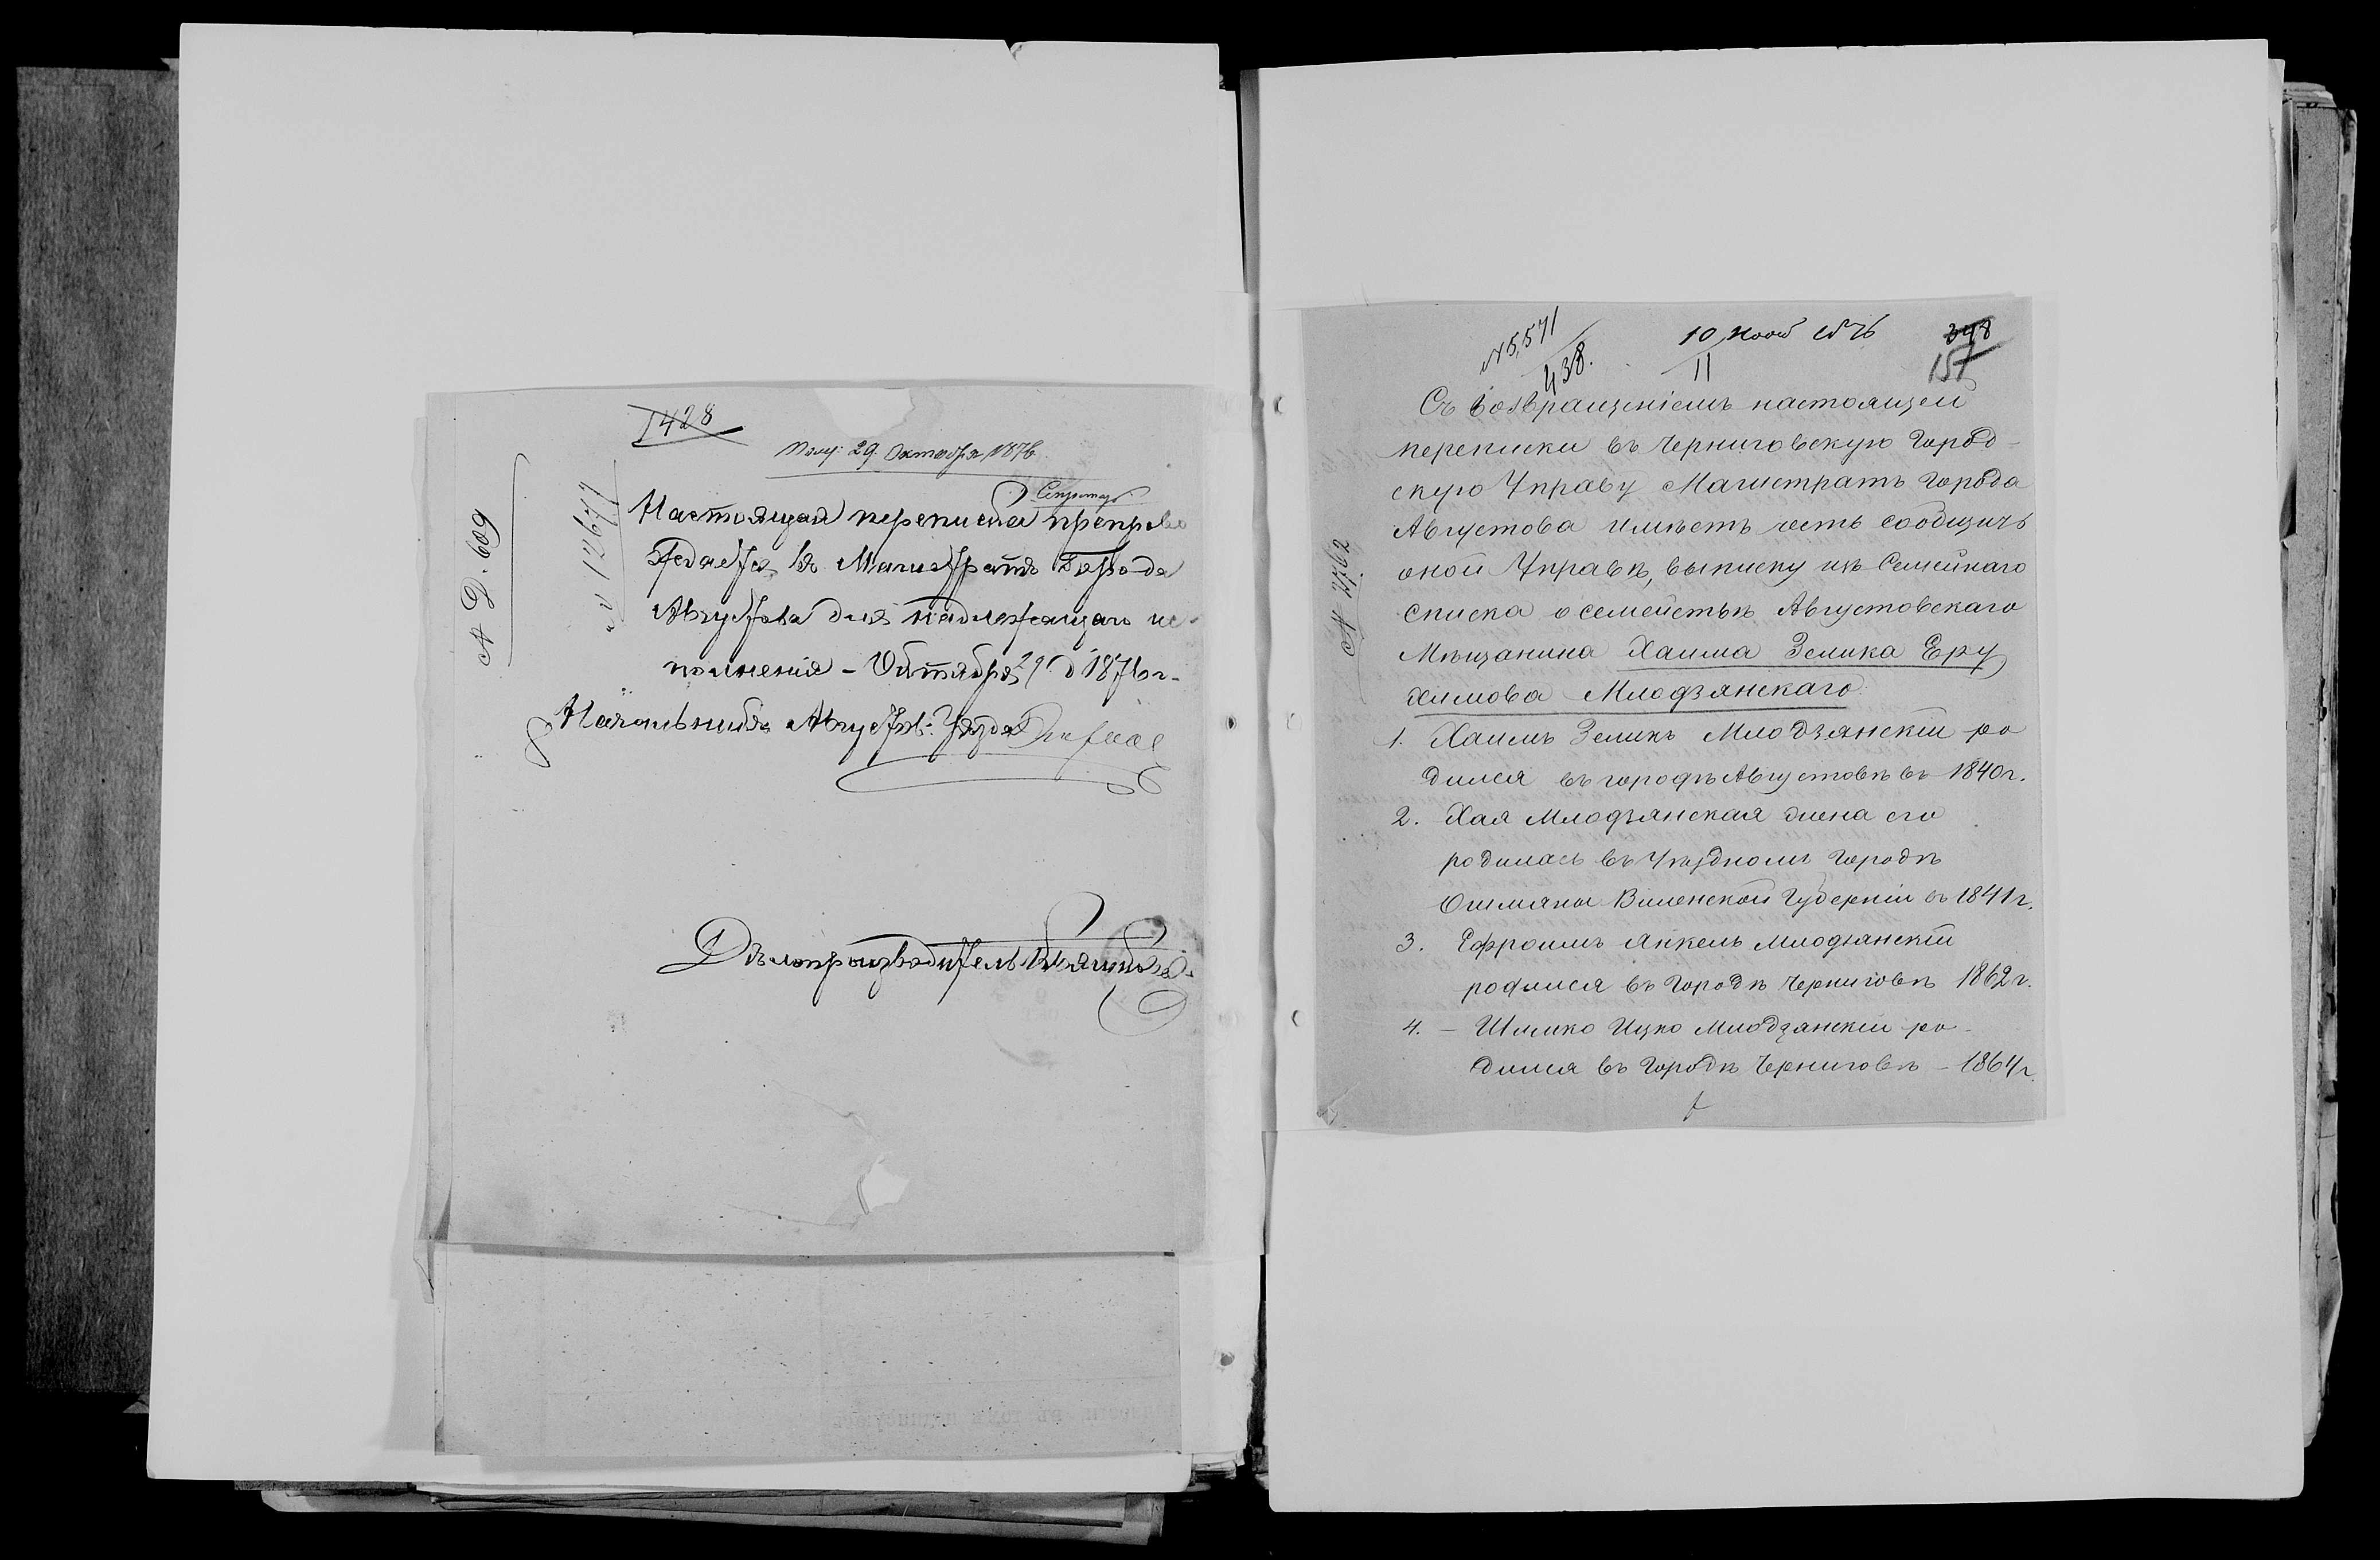 1428
Получ: 29. Октября 1876
Секретарь
№ Д. 609
№ 12677
Настоящая переписка препрово
ждается въ Магистратъ Города
Августова для надлежащаго ис-
полненія – Октября 29 д 1876 г.
Начальникъ Август: Уѣзда
Дѣлопроизводитель
№ 5,571
438.
10 Нояб 1876
11
348
157
№ 2762
Съ возвращеніемъ настоящей
переписки въ Черниговскую Город-
скую Управу Магистратъ Города
Августова имѣетъ честь сообщить
оной Управѣ, выписку изъ Семейнаго
списка о семействѣ Августовскаго
Мѣщанина Хаима Зелика Еру
химова Млодзянскаго
1. Хаимъ Зеликъ Млодзянскій ро
дился въ городѣ Августовѣ въ 1840 г.
2. Хая Млодзянская жена его
родилась въ Уѣздномъ Городѣ
Ошмяны Виленской Губерніи въ 1841 г.
3. Ефроимъ Янкель Млодзянскій
родился въ Городѣ Черниговѣ 1862 г.
4. – Шлико Ицко Млодзянскій ро-
дился въ Городѣ Черниговѣ – 1864 г.